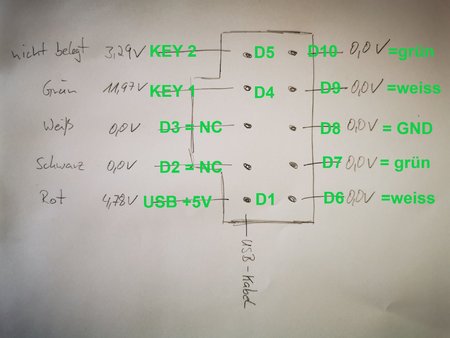 nicht belegt 3,29V KEY 2 D5 D10 0,0V =grün
Grün 11,97V KEY 1 D4 D9 0,0V =weiss
Weiß 0,0V D3 = NC D8 0,0V = GND
Schwarz 0,0V D2 = NC D7 0,0V = grün
Rot 4,78V USB +5V D1 D6 0,0V =weiss
USB-Kabel